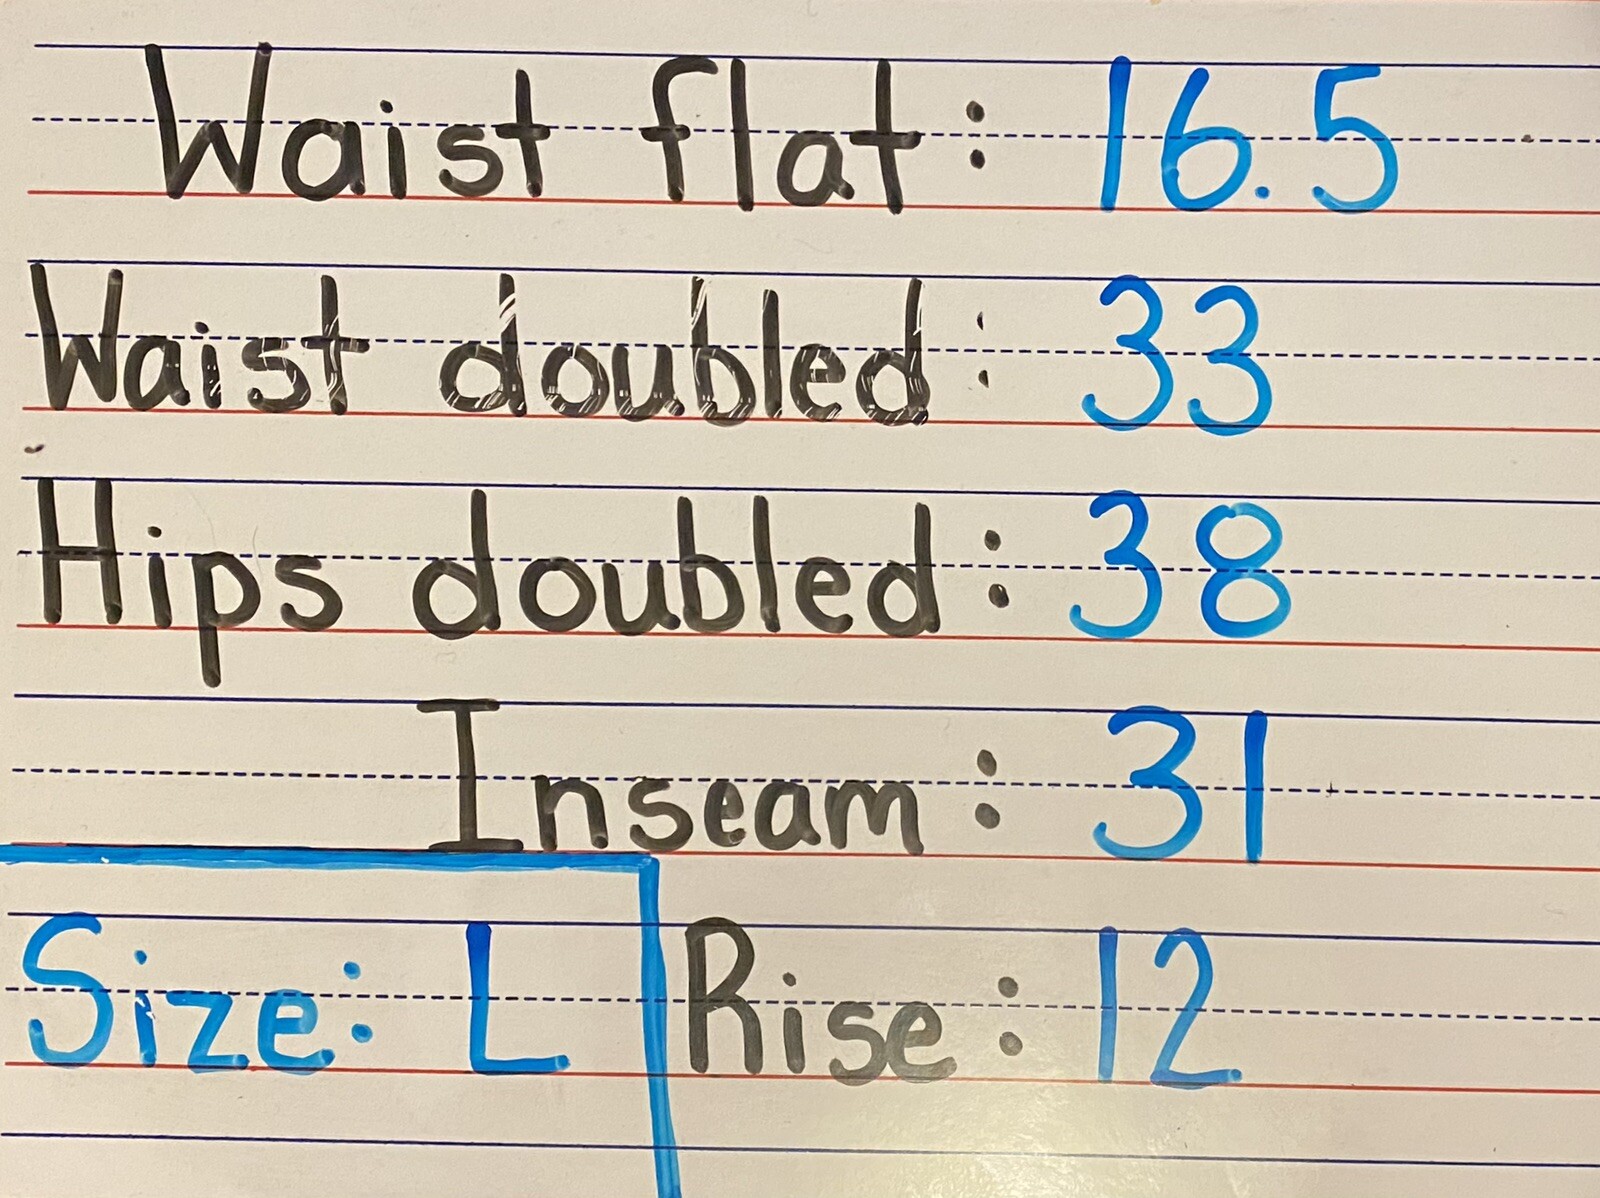 Waist flat: 16.5
Waist doubled: 33
Hips doubled: 38
Inseam: 31
Size: L
Rise: 12